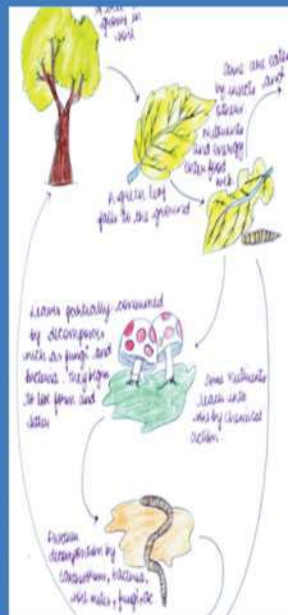 grows in
soil
Some are eaten
by insects and
nutrients
and energy
enter food
web.
A green leaf
falls to the ground
Leaves partially consumed
by decomposers
such as fungi and
bacteria. They begin
to lose form and
Some Nutrients
leach into
soil by chemical
action.
Further
decomposition by
earthworm, bacteria,
soil mites, fungi, etc